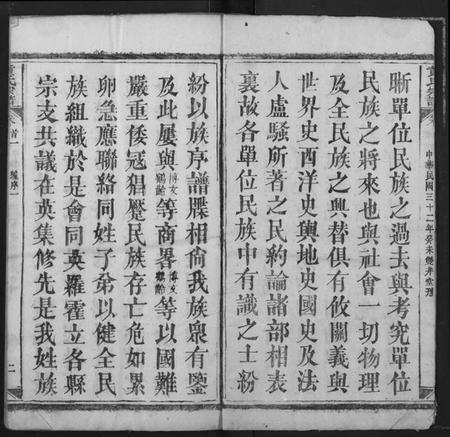 晰單位民族之過去與考究單位
民族之將來也與社會一切物理
及全民族之興替俱有攸關義與
世界史西洋史輿地史國史及法
人盧騷所著之民約論諸部相表
裏故各單位民族中有識之士紛
紛以族序譜牒相尚我族衆有鑒
及此屢與博文鶴齡等商界博文鶴齡等以國難
嚴重倭冦猖蹷民族存亡危如累
卵急應聯絡同姓子弟以健全民
族組織於是會同英羅霍立各縣
宗支共議在英集修先是我姓族
中華民國三十二年癸未
首一
序一
二